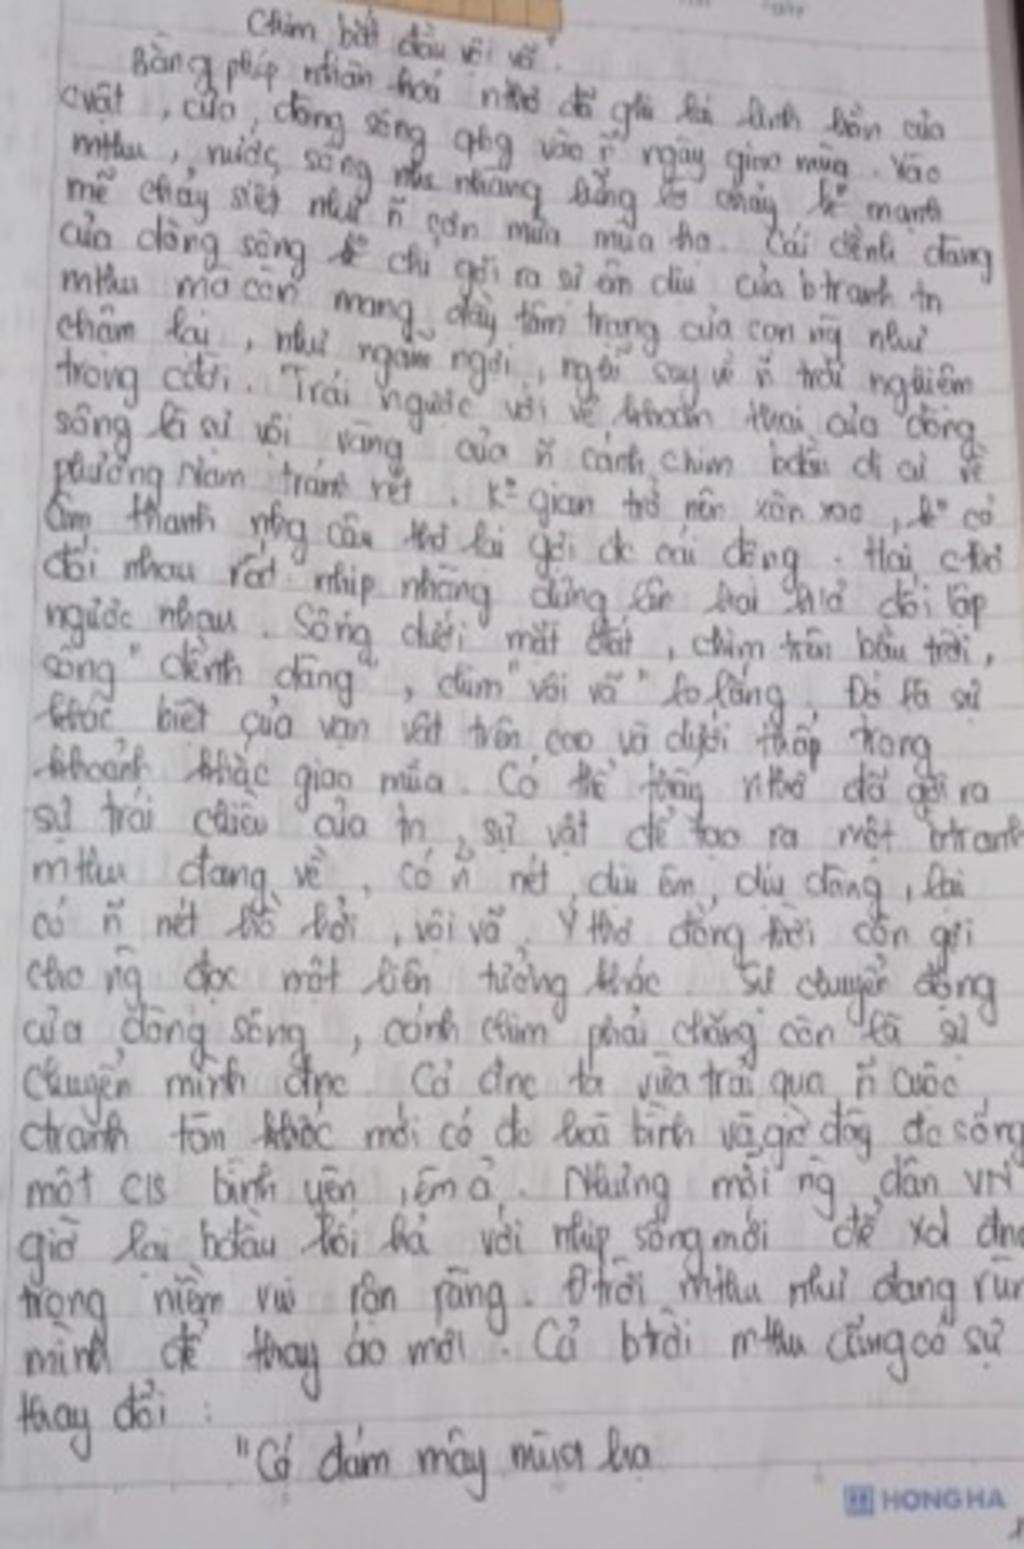 Chim bắt đầu vội vã".
Bằng phép nhân hoá nhà thơ đã ghi lại linh hồn của
cvật, của dòng sông qhg vào ñ ngày giao mùa. Vào
mthu, nước sông nhẹ nhàng lững lờ chảy k° mạnh
mẽ chảy siết như ñ cơn mưa mùa hạ. Cái dềnh dàng
của dòng sông k° chỉ gợi ra sự êm dịu của btranh tn
mthu mà còn mang đầy tâm trạng của con ng như
chậm lại, như ngẫm ngợi, nghĩ suy về ñ trải nghiệm
trong cđời. Trái ngược với vẻ khoan thai của dòng
sông là sự vội vàng của ñ cánh chim bđầu di cư về
phương Nam tránh rét. K° gian trở nên xôn xao, k° có
âm thanh nhg câu thơ lại gợi đc cái động. Hai câu thơ
đối nhau rất nhịp nhàng dựng lên hai h/ả đối lập
ngược nhau. Sông dưới mặt đất, chim trên bầu trời,
sông "dềnh dàng", chim "vội vã" lo lắng. Đó là sự
khác biệt của vạn vật trên cao và dưới thấp trong
khoảnh khắc giao mùa. Có thể thấy nthơ đã gợi ra
sự trái chiều của tn, sự vật để tạo ra một btranh
mthu đang về, có ñ nét dịu êm, dịu dàng, lại
có ñ nét hồ hởi, vội vã. Ý thơ đồng thời còn gợi
cho ng đọc một liên tưởng khác. Sự chuyển động
của dòng sông, cánh chim phải chăng còn là sự
chuyển mình đnc. Cả đnc ta vừa trải qua ñ cuộc
ctranh tàn khốc mới có đc hoà bình và giờ đây đc sống
một c/s bình yên, êm ả. Nhưng mỗi ng dân VN
giờ lại bđầu hối hả với nhịp sống mới để xd đnc
trong niềm vui rộn ràng. Đtrời mthu như đang rùng
mình để thay áo mới. Cả btrời mthu cũng có sự
thay đổi:
"Có đám mây mùa hạ
HONG HA